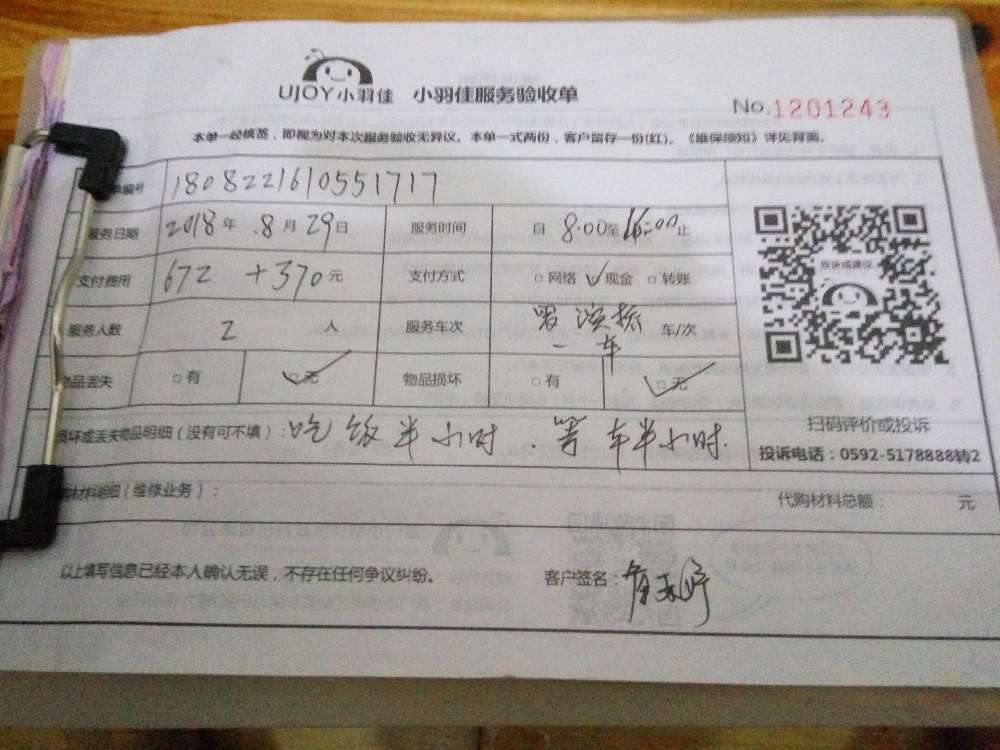 UJOY小羽佳 小羽佳服务验收单
No.1201243
本单一经核签，即视为对本次服务验收无异议。本单一式两份，客户留存一份(红)。《维保须知》详见背面。
单编号 1808221610551717
服务日期 2018年 8月29日 服务时间 自 8:00至16:00止
支付费用 672 +370元 支付方式 □网络 ✓现金 □转账
服务人数 2 人 服务车次 一车 车/次
物品丢失 □有 ✓无 物品损坏 □有 ✓□无
损坏或丢失物品明细（没有可不填）：吃饭半小时．等车半小时．
投诉或建议
扫码评价或投诉
投诉电话：0592-5178888转2
购材料明细（维修业务）： 代购材料总额： 元
以上填写信息已经本人确认无误，不存在任何争议纠纷。 客户签名：